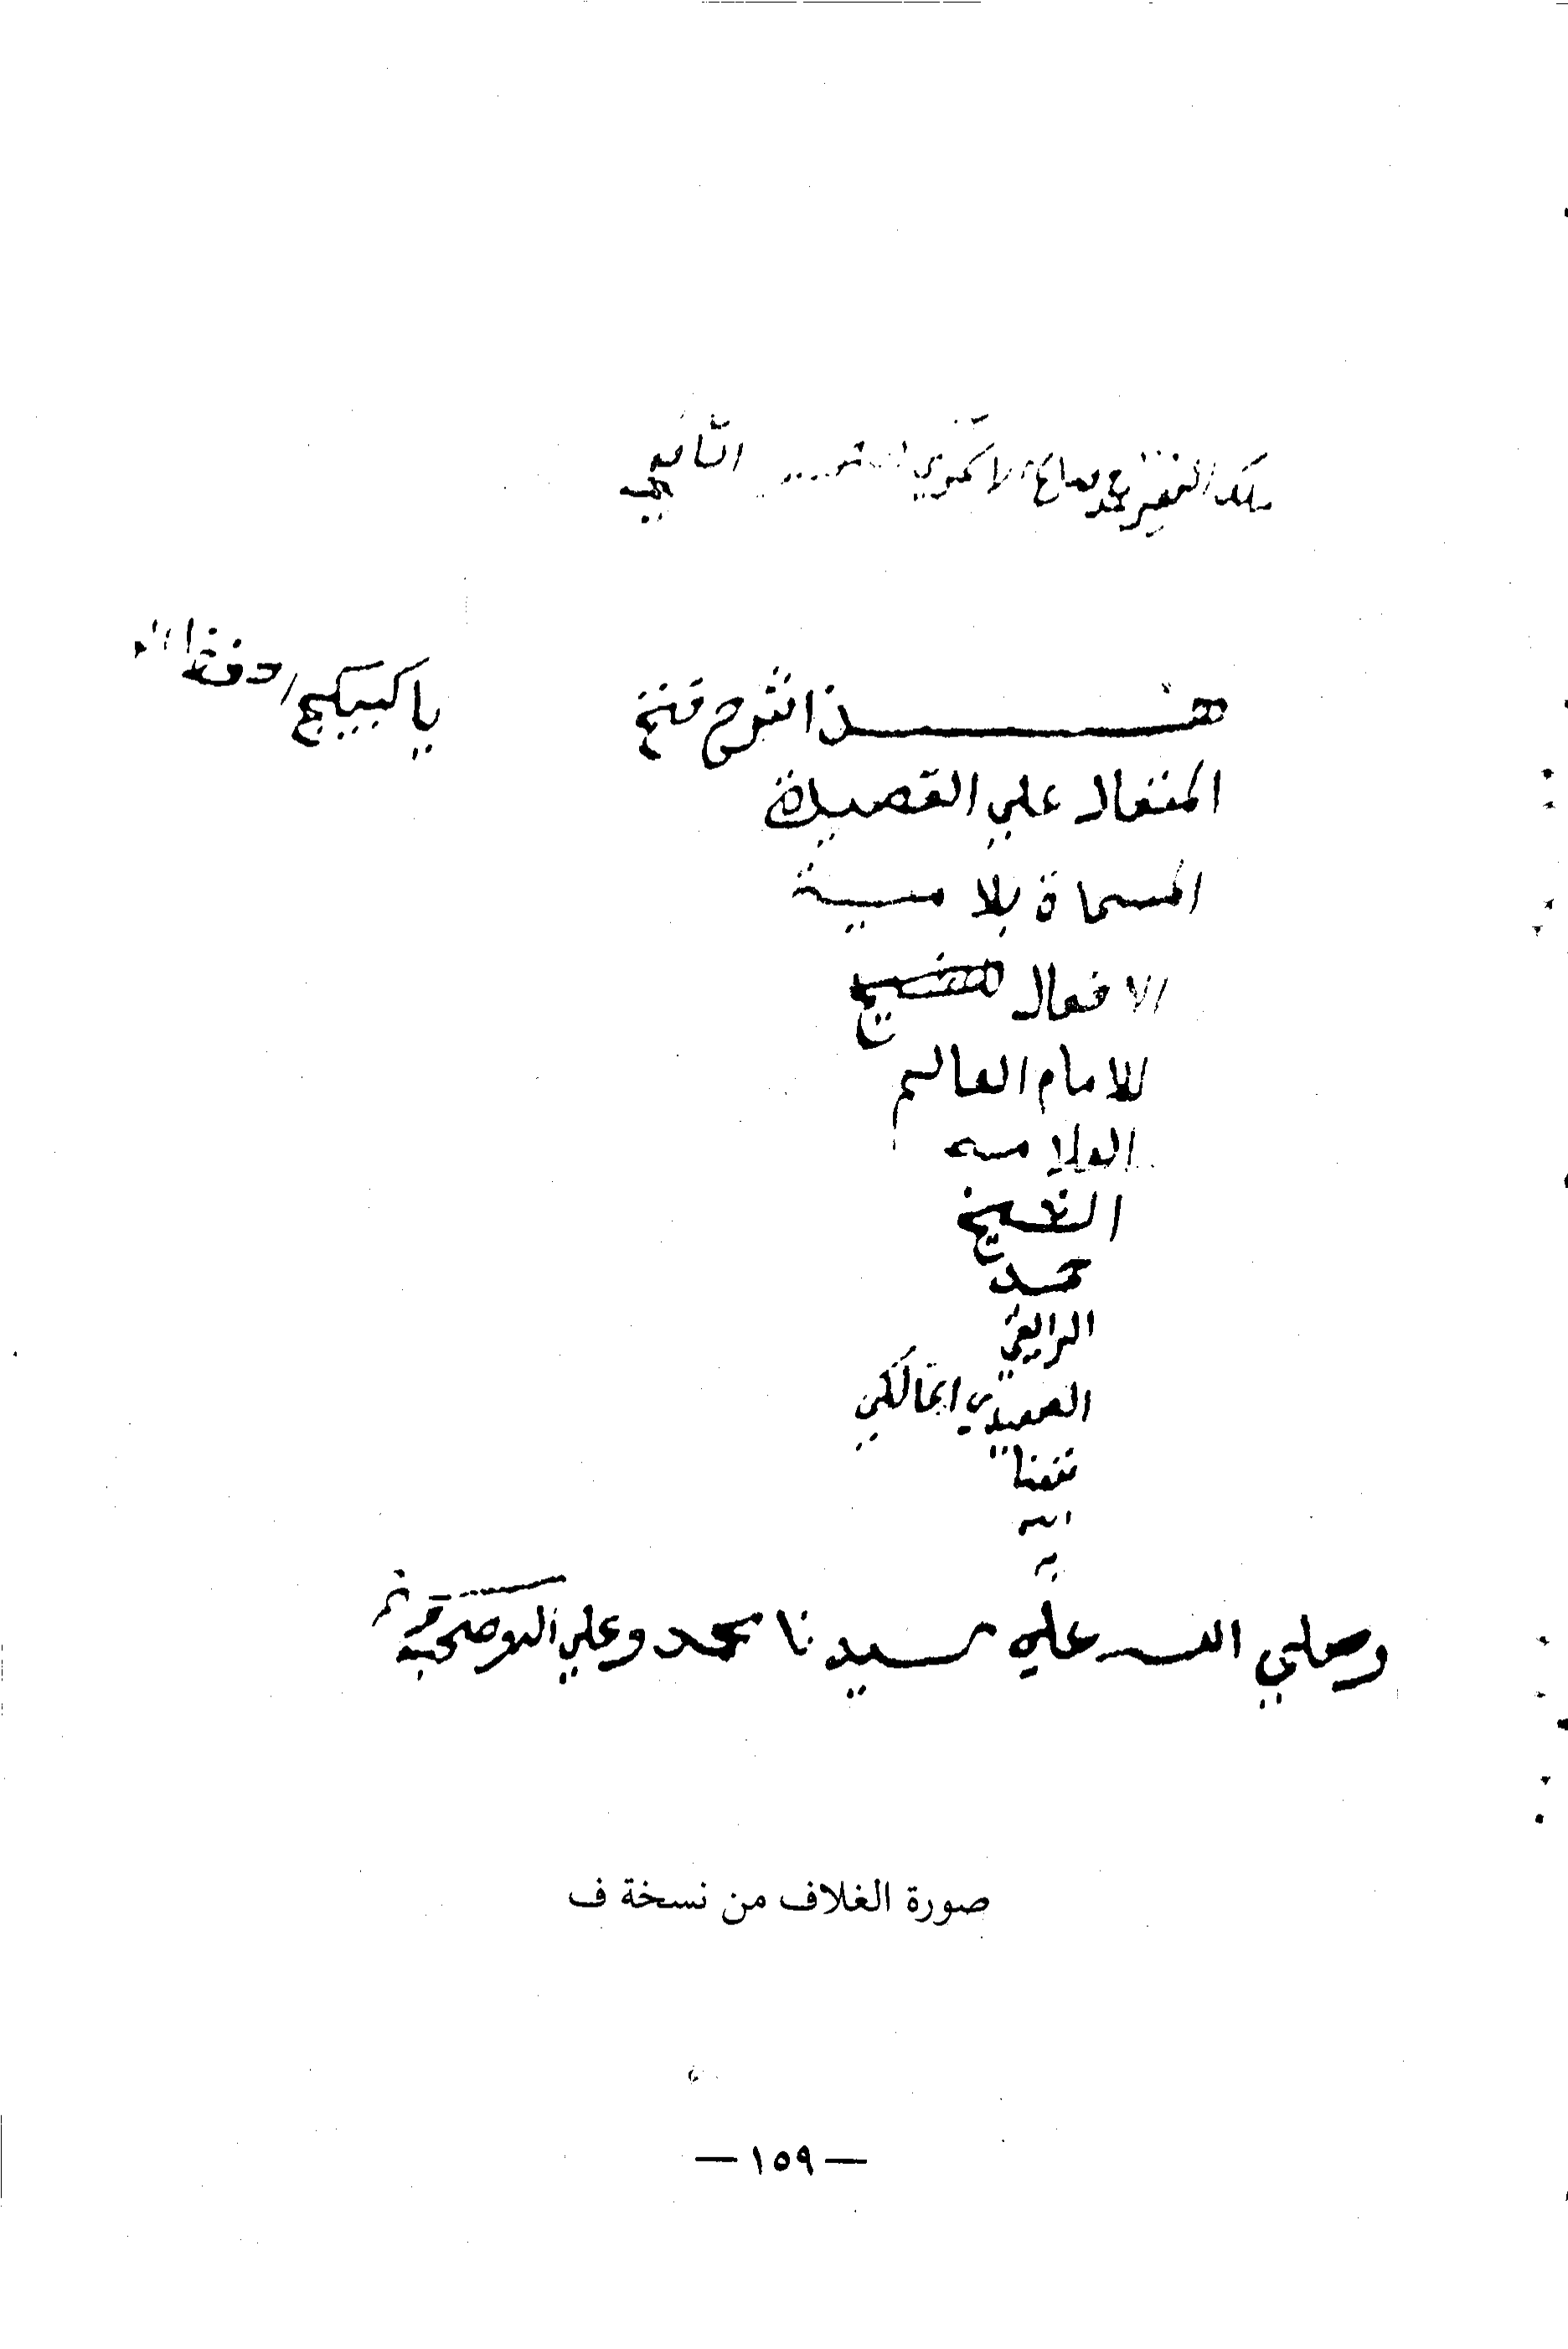 ملكه الفقير محمد صالح الشافعي
هذا شرح فتح
المتعال علي القصيدة
المسماة بلامية
الافعال
للامام العالم
العلامه
الشيخ
محمد
الصعيدي المالكي
نفعنا
الله
به
يا كبيكج احفظ
وصلي الله علي سيدنا محمد وعلي اله وصحبه
صورة الغلاف من نسخة ف
— ١٥٩ —